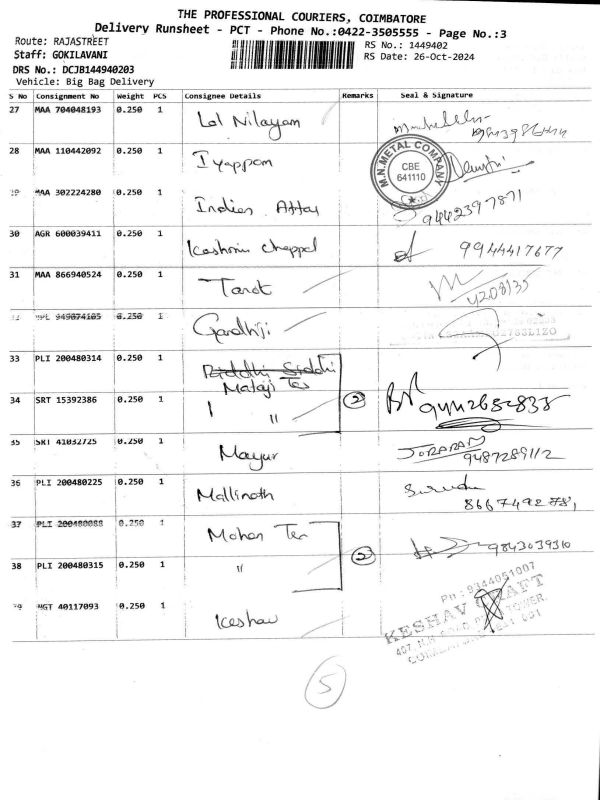 THE PROFESSIONAL COURIERS, COIMBATORE
Delivery Runsheet - PCT - Phone No.:0422-3505555 - Page No.:3
Route: RAJASTREET
RS No.: 1449402
Staff: GOKILAVANI
RS Date: 26-Oct-2024
DRS No.: DCJB144940203
Vehicle: Big Bag Delivery
S No Consignment No Weight PCS Consignee Details Remarks Seal & Signature
27 MAA 704048193 0.250 1 Lal Nilayam
28 MAA 110442092 0.250 1 Iyappan
M.N.METAL COMPANY
CBE
641110
29 MAA 302224280 0.250 1 Indian
9442397871
30 AGR 600039411 0.250 1 Kashmir Chappal 9944417677
31 MAA 866940524 0.250 1 Tarot
4208135
0.250 1 Gandhiji
33 PLI 200480314 0.250 1 Riddhi Siddhi
Mataji Tex
34 SRT 15392386 0.250 1 " 2
35 SRT 41032725 0.250 1 Mayur
9487289112
36 PLI 200480225 0.250 1 Mallinath
37 PLI 200480088 0.250 1 Mohan Tex
2 9843039310
38 PLI 200480315 0.250 1 "
Ph : 9344051007
39 40117093 0.250 1 Keshav
KESHAV CRAFT
5